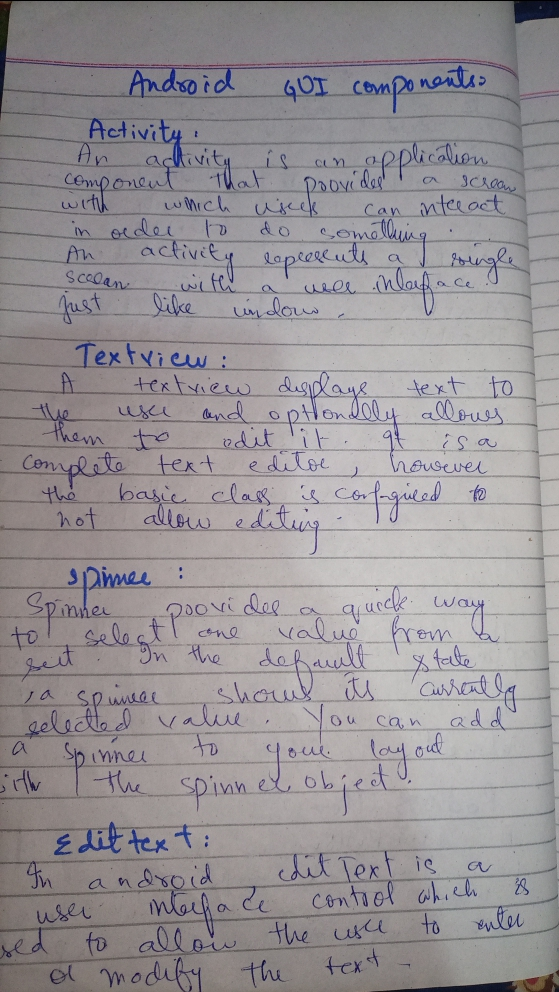 Android GUI components:
Activity:
An activity is an application
component that provides a screen
with which users can interact
in order to do something.
An activity represents a single
screen with a user interface
just like window.
Textview:
A textview displays text to
the user and optionally allows
them to edit it. It is a
complete text editor, however
the basic class is configured to
not allow editing.
Spinner:
Spinner provides a quick way
to select one value from a
set. In the default state
, a spinner shows its currently
selected value. You can add
a spinner to your layout
with the spinner object.
Edit text:
In android, edit Text is a
user interface control which is
sed to allow the user to enter
or modify the text.